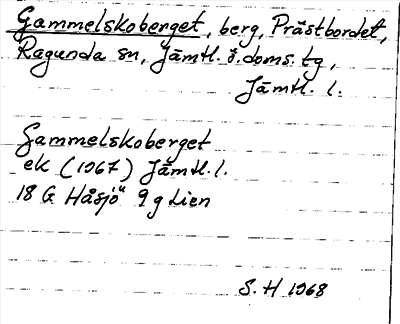 Gammelskoberget, berg, Prästbordet,
Ragunda sn, Jämtl. ö. doms. tg,
Jämtl. l.
Gammelskoberget
ek (1967) Jämtl. l.
18 G Håsjö 9 g Lien
S. H 1968